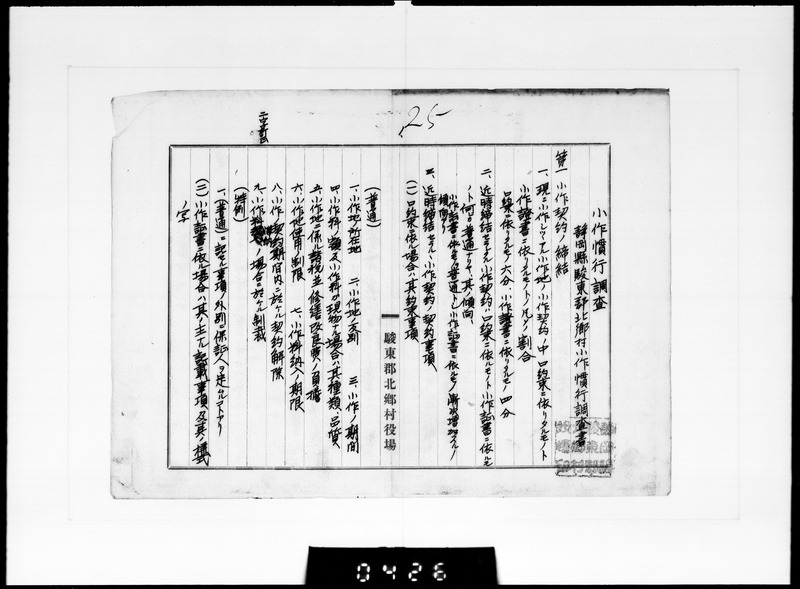 25
二字訂正
小作慣行調査
静岡縣駿東郡北郷村小作慣行調査書
第一 小作契約ノ締結
一、現ニ小作シツヽアル小作地ノ小作契約ノ中口約束ニ依リタルモノト
小作證書ニ依リタルモノトノ凡ソノ割合
口約束ニ依リタルモノ 六分 小作證書ニ依リタルモノ 四分
二、近時締結セラルヽ小作契約ハ口約束ニ依ルモノト小作証書ニ依ルモ
ノト何レガ普通ナリヤ、其ノ傾向
小作証書ニ依ルヲ普通トシ小作証書ニ依ルモノ漸次増加スルノ
傾向アリ
三、近時締結セラルヽ小作契約ノ契約事項
(一)口約束ニ依ル場合ハ其ノ約束事項
(普通)
一、小作地ノ所在地 二、小作地ノ反別 三、小作ノ期間
四、小作料ノ額及小作料ガ現物ナル場合ハ其ノ種類、品質、
五、小作地ニ係ル諸税並修繕改良費ノ負擔
六、小作地使用ノ制限 七、小作料納入ノ期限
八、小作ノ契約期間内ニ於ケル契約解除
九、小作料 ノ場合ニ於ケル制裁
(特例)
一、(普通)ニ記セル事項ノ外別ニ保証人ヲ定ムルコトアリ
(二)小作証書ニ依ル場合ハ其ノ主ナル記載事項及其ノ様式
ノ写
駿東郡北郷村役場
0426